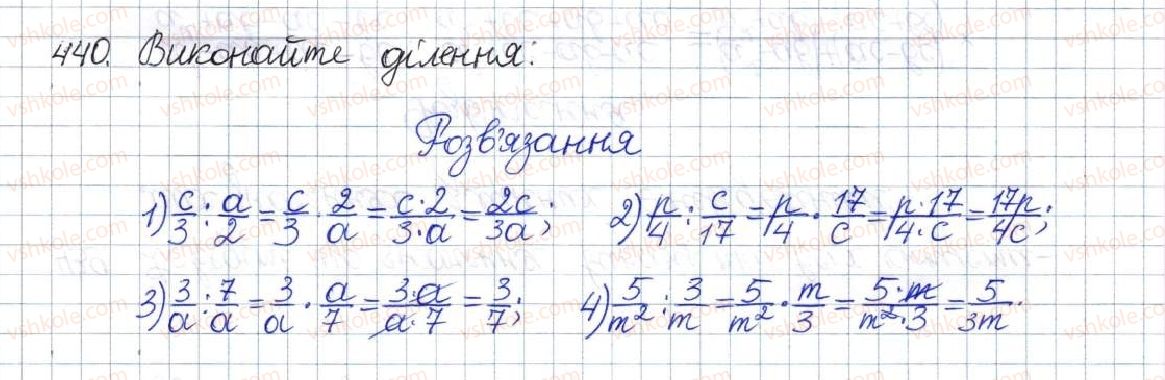 440. Виконайте ділення:
Розв'язання
1) c/3 : a/2 = c/3 · 2/a = c·2/3·a = 2c/3a; 2) p/4 : c/17 = p/4 · 17/c = p·17/4·c = 17p/4c;
3) 3/a : 7/a = 3/a · a/7 = 3·a/a·7 = 3/7; 4) 5/m² : 3/m = 5/m² · m/3 = 5·m/m²·3 = 5/3m.